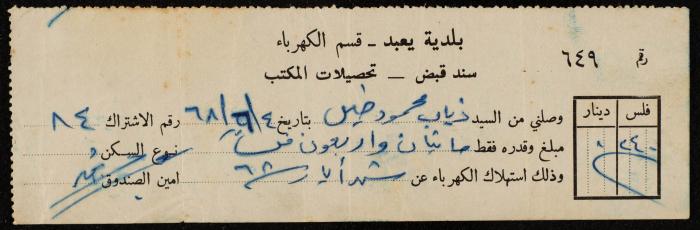 بلدية يعبد - قسم الكهرباء
رقم ٦٤٩
سند قبض — تحصيلات المكتب
فلس دينار
٢٤٠
وصلني من السيد ذياب محمود خليل بتاريخ ٤/٦/٦٨ رقم الاشتراك ٨٤
مبلغ وقدره فقط مائتان واربعون فلساً نوع السكن
وذلك استهلاك الكهرباء عن شهر أيار ٦٨ امين الصندوق